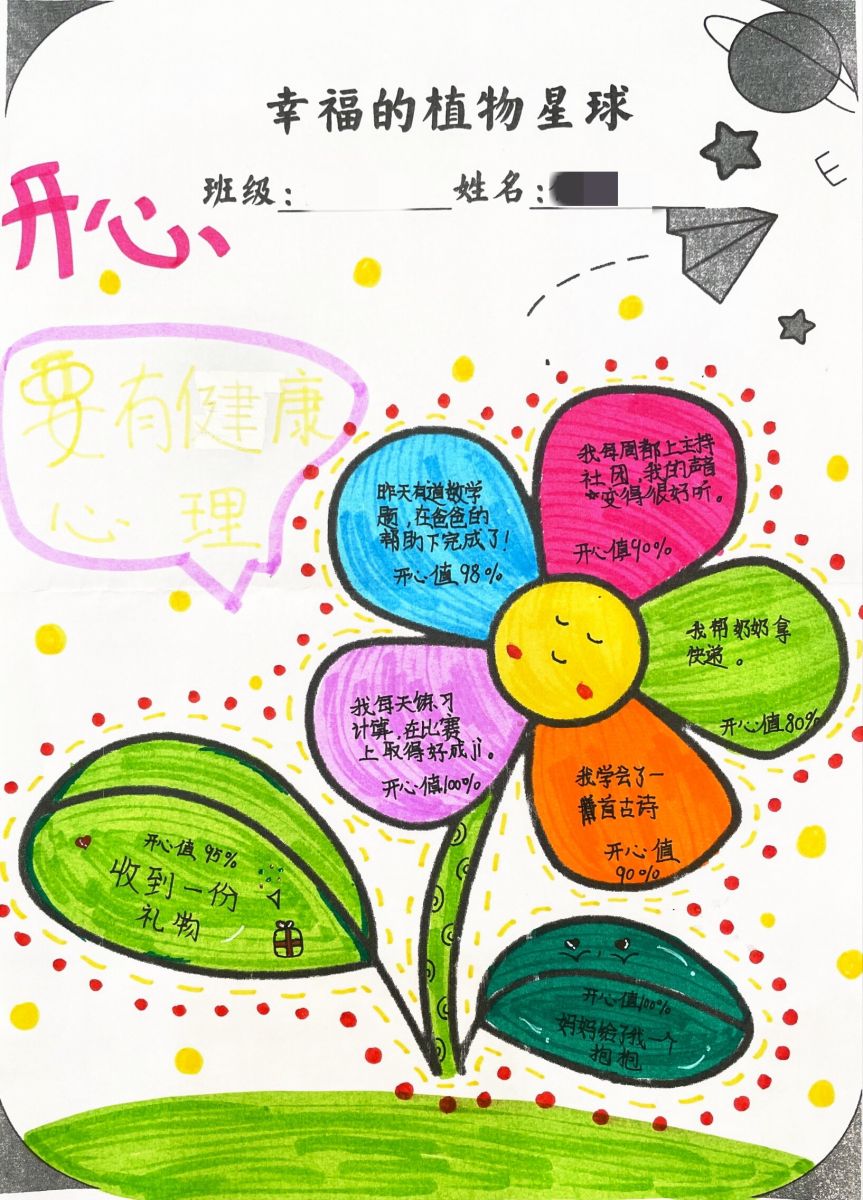 幸福的植物星球
班级：
姓名：
开心
要有健康
心理
昨天有道数学
题，在爸爸的
帮助下完成了！
开心值98%
我每周都上主持
社团，我的声音
变得很好听。
开心值90%
我帮奶奶拿
快递。
开心值80%
我每天练习
计算，在比赛
上取得好成jì。
开心值100%
我学会了一
首古诗
开心值
90%
开心值95%
收到一份
礼物
开心值100%
妈妈给了我一个
抱抱